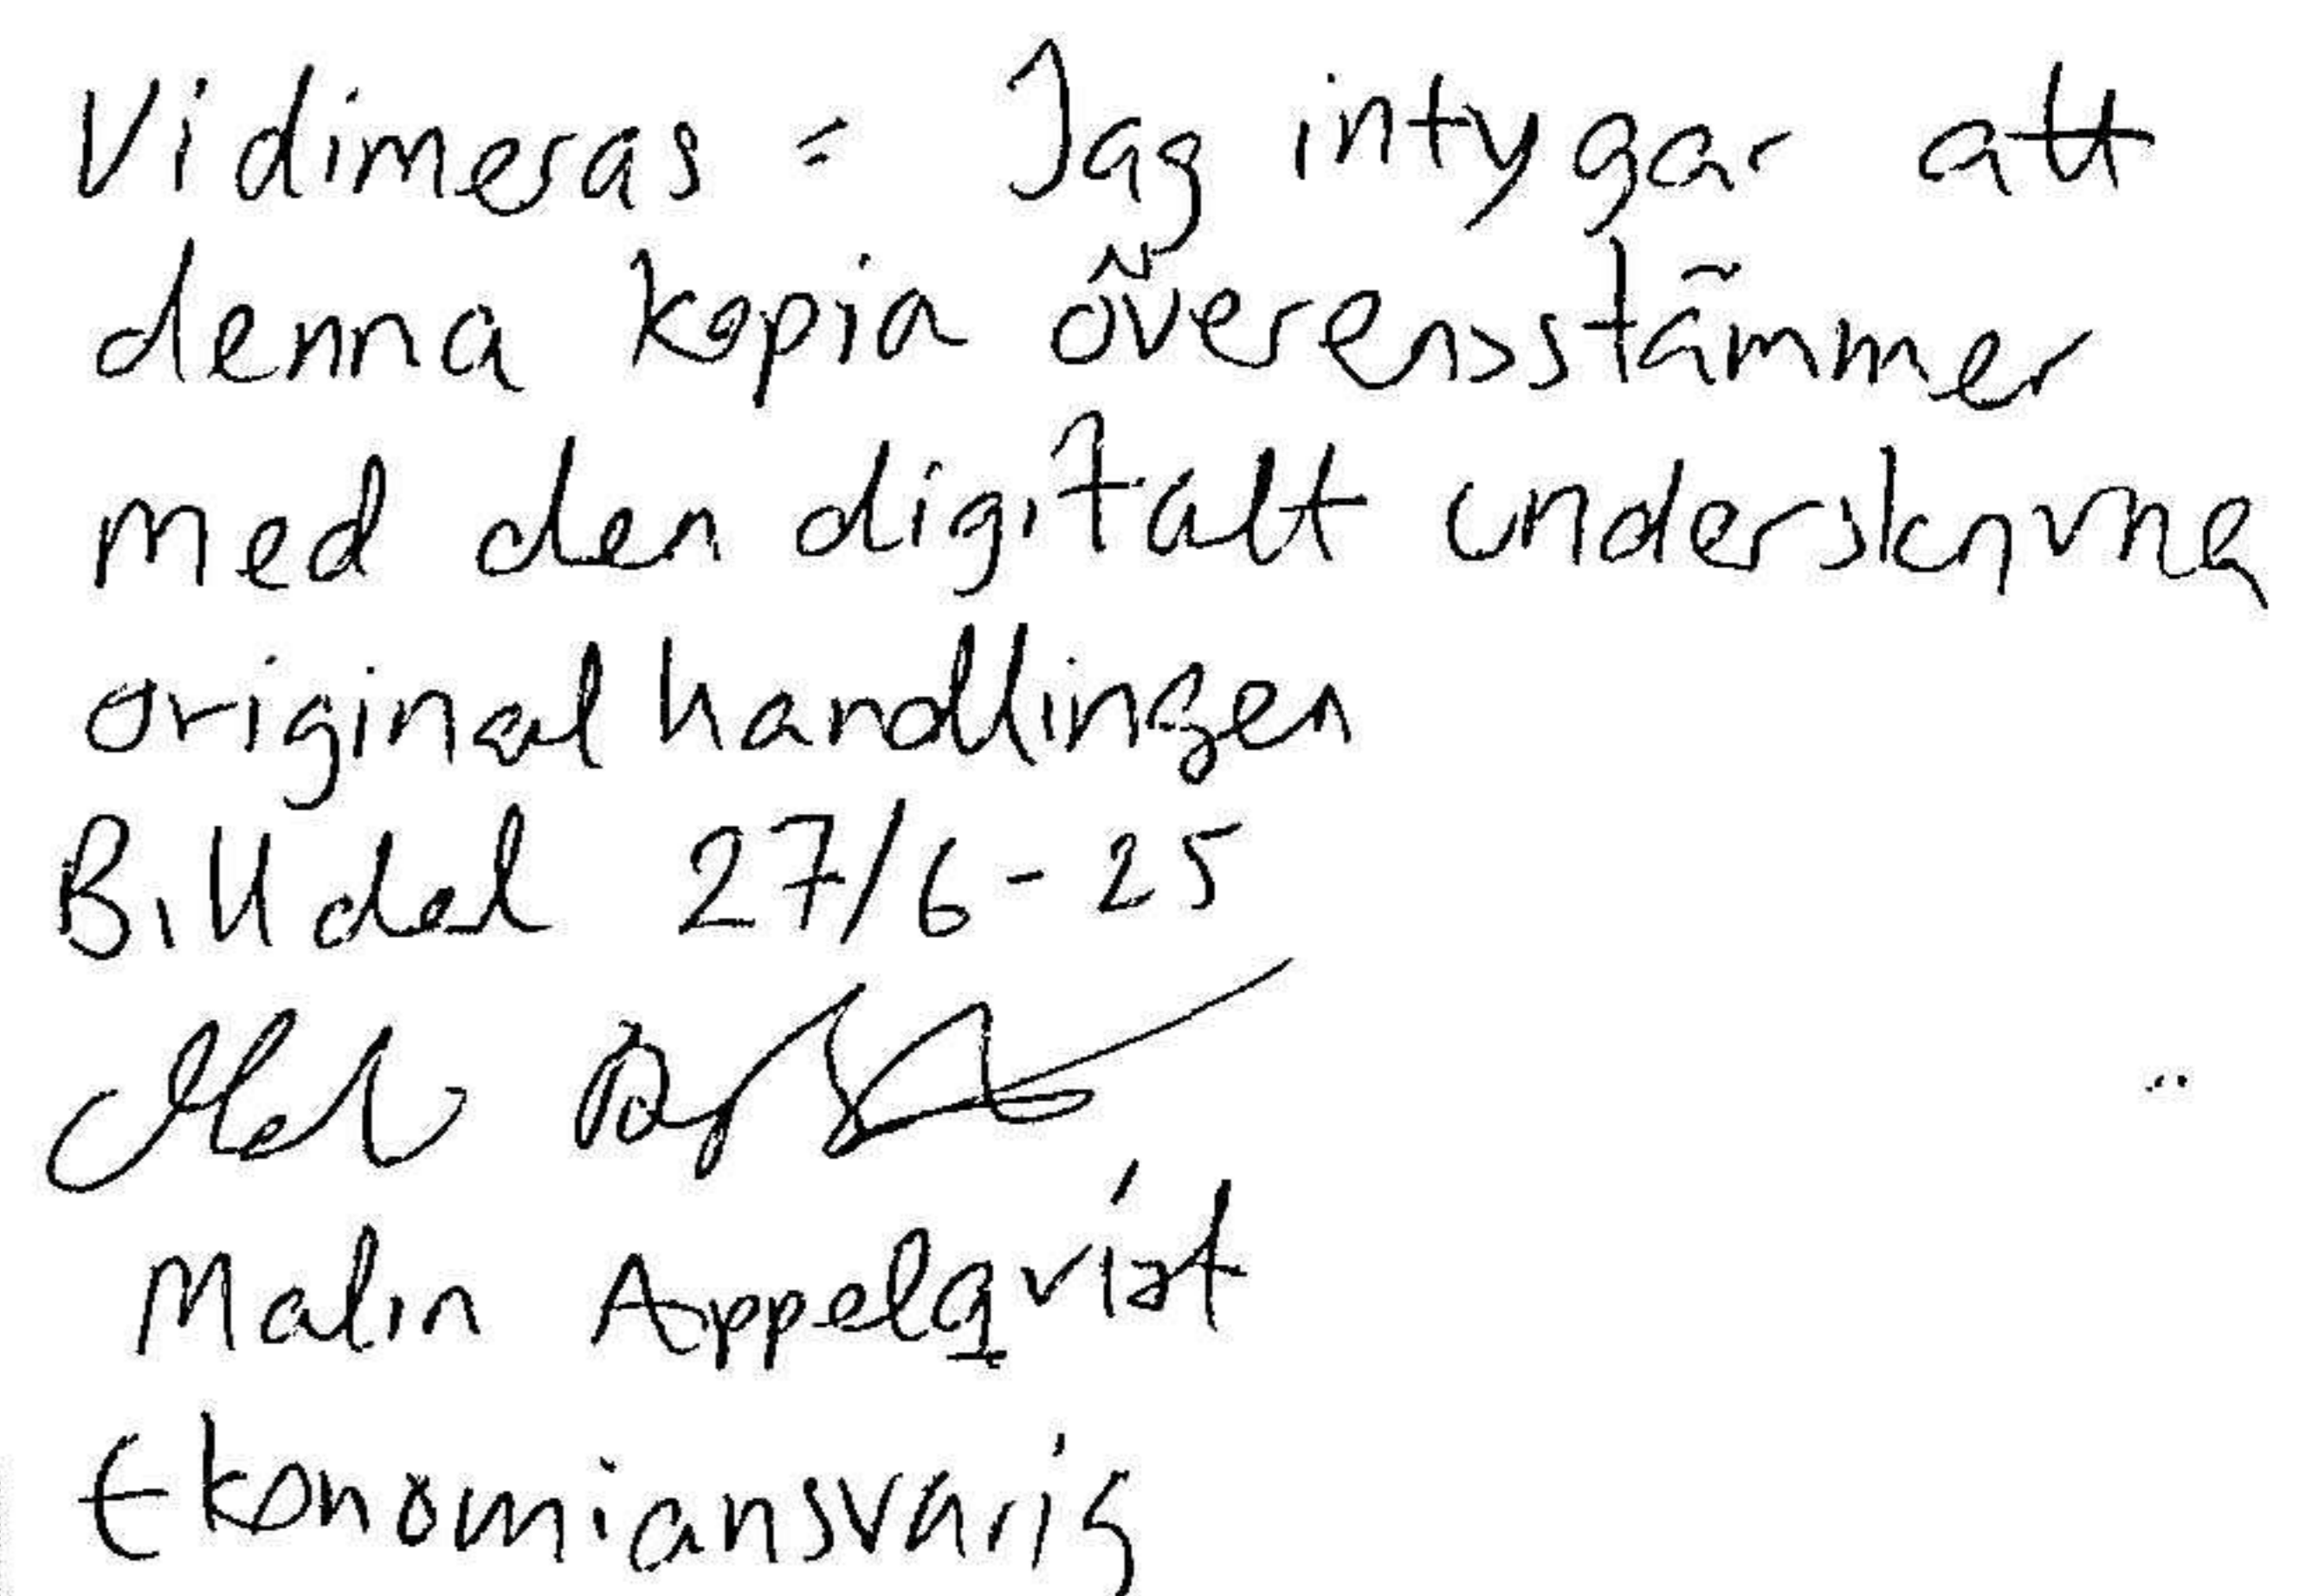 Vidimeras = Jag intygar att
denna kopia överensstämmer
med den digitalt underskrivna
originalhandlingen
Billdal 27/6-25
Malin Appelqvist
Ekonomiansvarig